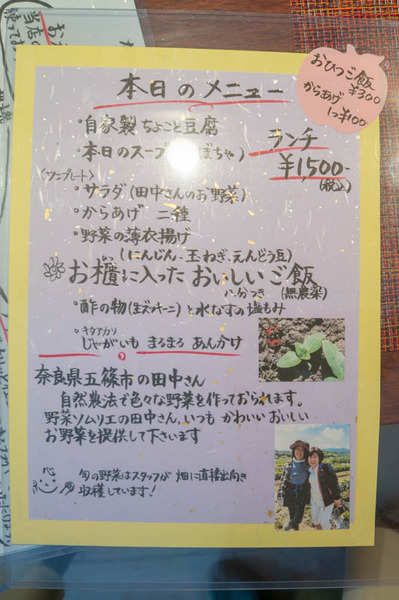 本日のメニュー
おひつご飯
¥300
からあげ
1ヶ¥100
・自家製ちょこっと豆腐
・本日のスープ ぼちゃ)
ランチ
¥1,500-
(税込)
〈ワンプレート〉
・サラダ(田中さんのお野菜)
・からあげ 二種
・野菜の薄衣揚げ
(にんじん、玉ねぎ、えんどう豆)
お櫃に入った おいしいご飯
八分つき (無農薬)
・酢の物(生ズッキーニ)と水なすの塩もみ
・キタアカリ
じゃがいも まるまる あんかけ
奈良県五篠市の田中さん
自然農法で色々な野菜を作っておられます。
野菜ソムリエの田中さん、いつも かわいい おいしい
お野菜を提供して下さいます
心
旬の野菜はスタッフが 畑に直接出向き
収穫しています!